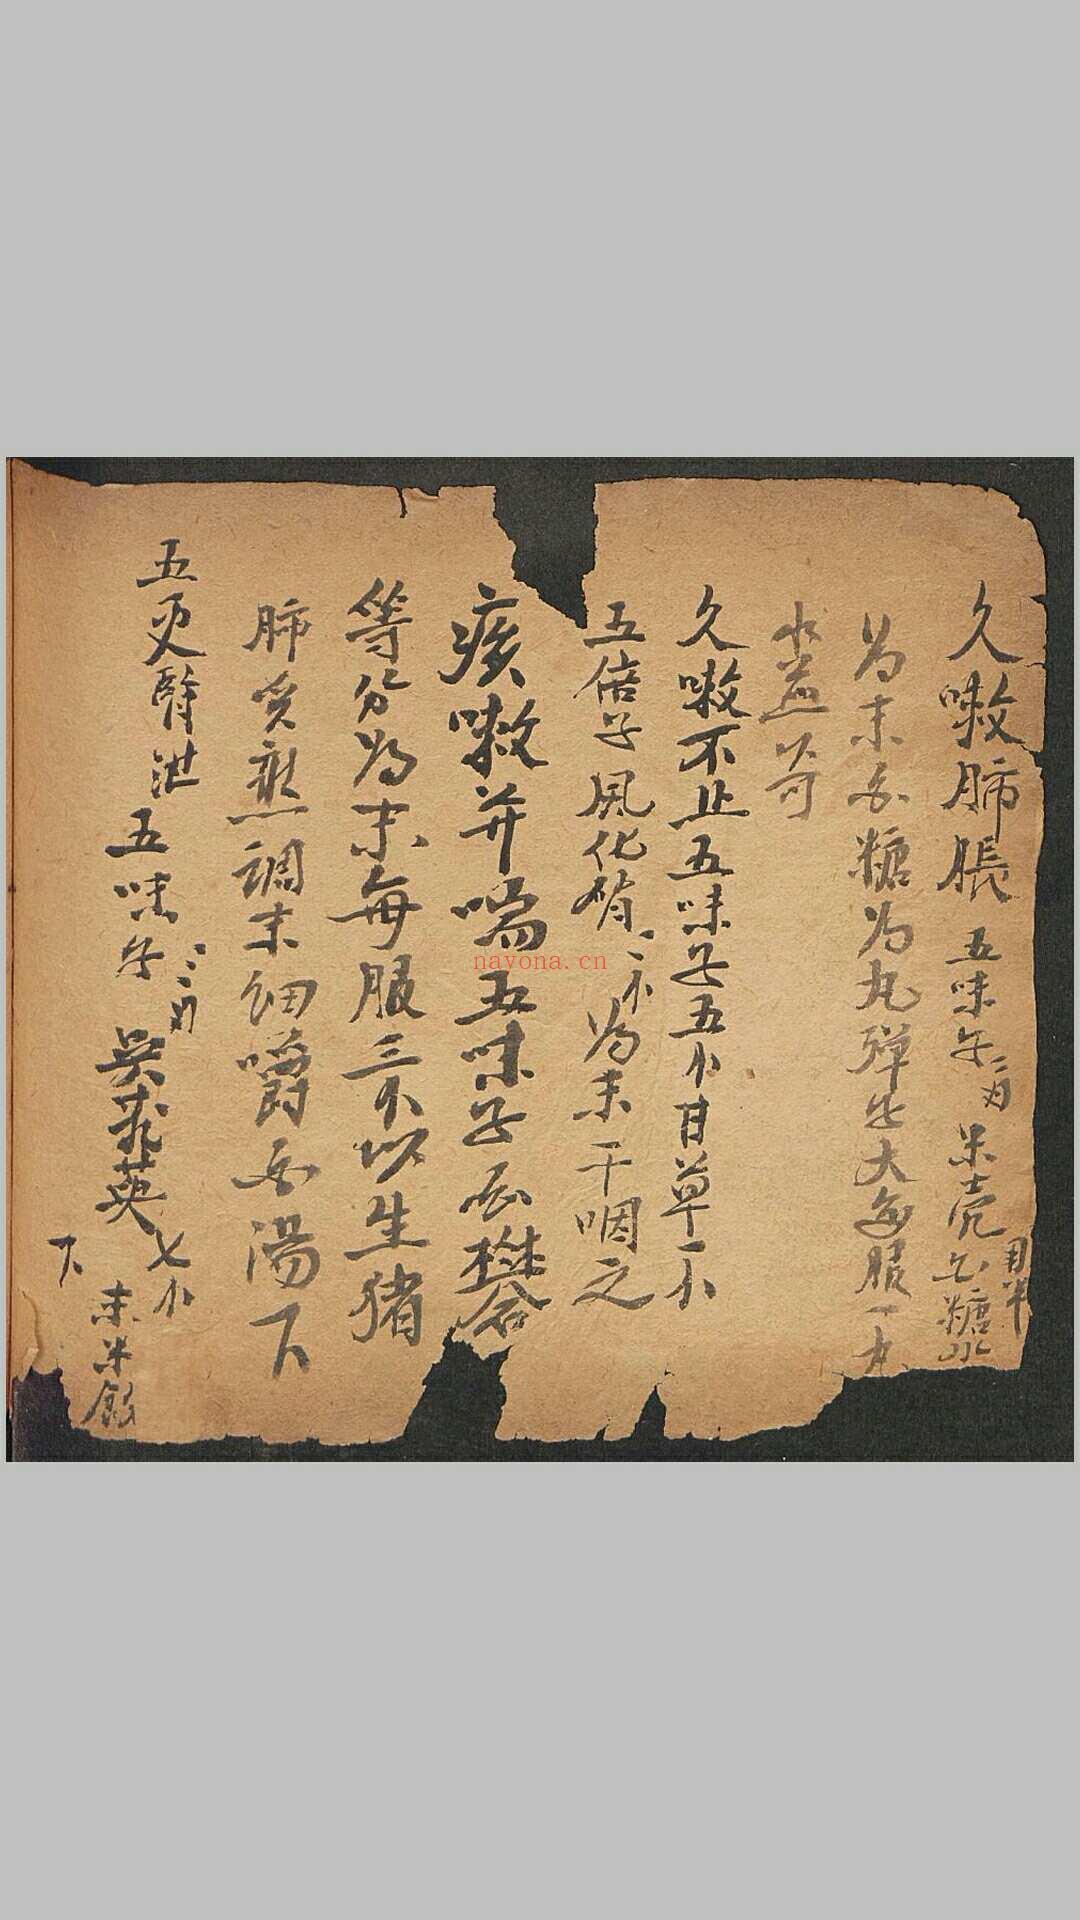 久嗽肺脹 五味子二两 米壳 用半 白糖炒
为末 白糖为丸弹子大每服一丸
水煎
久嗽不止五味子五小甘草一小
五倍子風化硝二小为末干咽之
痰嗽并喘五味子白礬
等分为末每服三小以生猪
肺炙熟調末細嚼白湯下
五更腎泄五味子二两 吳茱萸七小 末米飲
下
nayona.cn